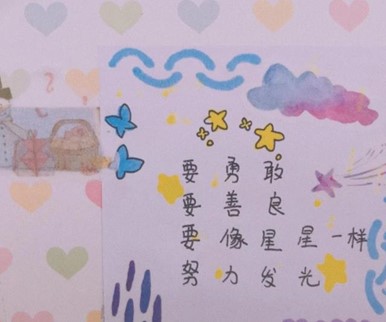 要勇敢
要善良
要像星星一样
努力发光